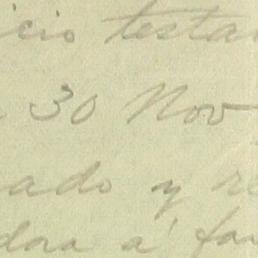 icio testa
30 Nov
ado y re
dora á fav